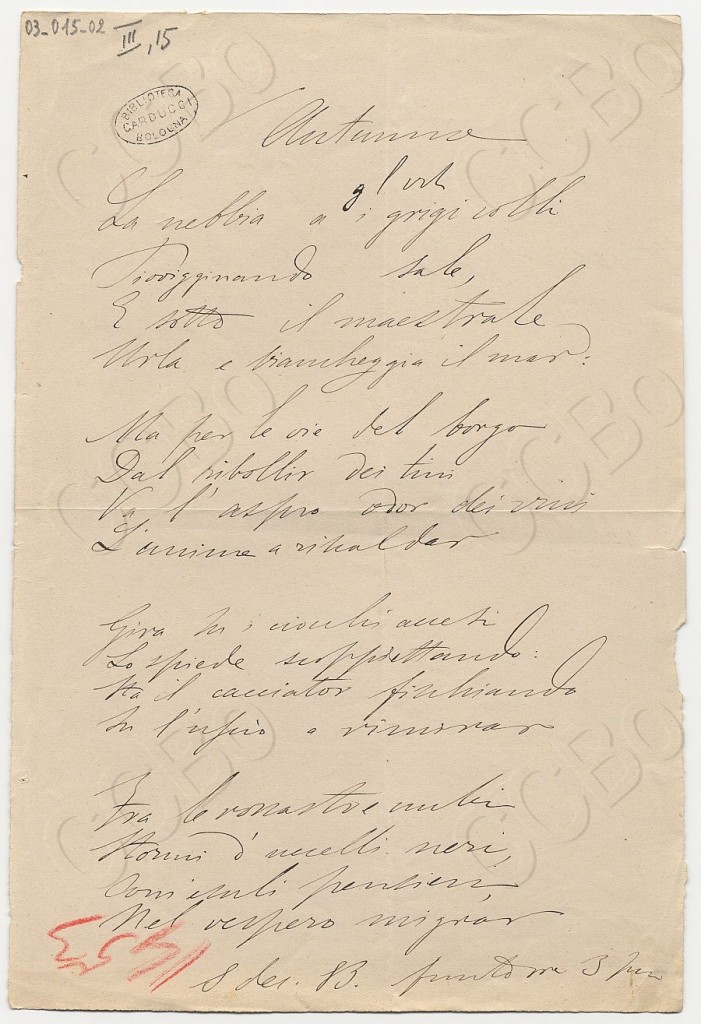 03_015-02 III, 15
BIBLIOTECA
CARDUCCI
BOLOGNA
Autunno
gl'irti
La nebbia a i grigi colli
Piovigginando sale,
E sotto il maestrale
Urla e biancheggia il mar:
Ma per le vie del borgo
Dal ribollir dei tini
Va l'aspro odor dei vini
L'anime a riscaldar
Gira su i ciocchi accesi
Lo spiede scoppiettando:
Sta il cacciator fischiando
Su l'uscio a rimirar
Fra le rossastre nubi
Stormi d'uccelli neri,
Com'esuli pensieri,
Nel vespero migrar
8 dec. 83. ore 3 pom
CCBo
CCBo
CCBo
CCBo
CCBo
CCBo